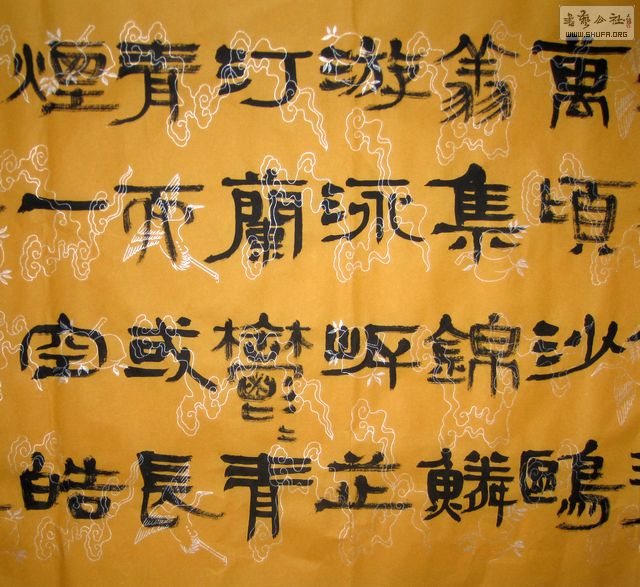 萬頃沙鷗
翔集錦鱗
游泳岸芷
汀蘭鬱〻青
青而或長
煙一空皓
書藝公社
WWW.SHUFA.ORG